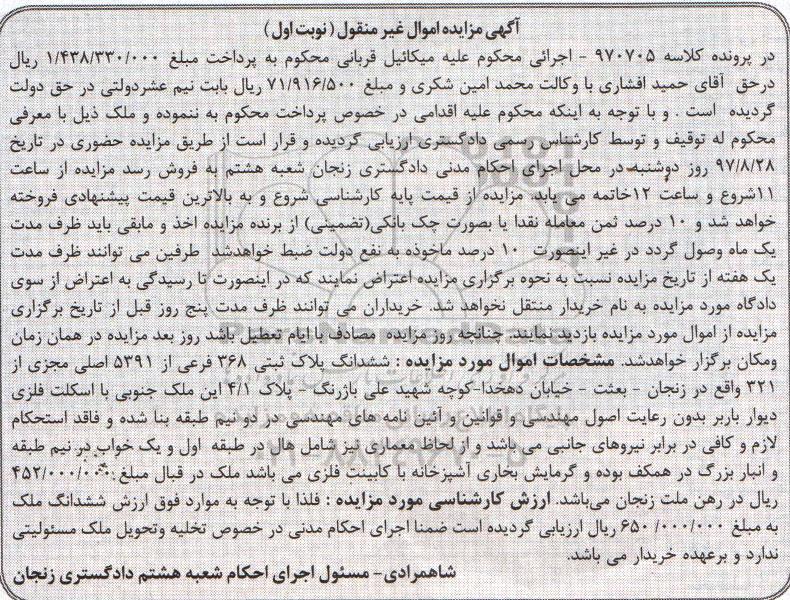 آگهی مزایده اموال غیر منقول ( نوبت اول )
در پرونده کلاسه ۹۷۰۷۰۵ - اجرائی محکوم علیه میکائیل قربانی محکوم به پرداخت مبلغ ۱/۴۳۸/۳۳۰/۰۰۰ ریال
درحق آقای حمید افشاری با وکالت محمد امین شکری و مبلغ ۷۱/۹۱۶/۵۰۰ ریال بابت نیم عشردولتی در حق دولت
گردیده است . و با توجه به اینکه محکوم علیه اقدامی در خصوص پرداخت محکوم به ننموده و ملک ذیل با معرفی
محکوم له توقیف و توسط کارشناس رسمی دادگستری ارزیابی گردیده و قرار است از طریق مزایده حضوری در تاریخ
۹۷/۸/۲۸ روز دوشنبه در محل اجرای احکام مدنی دادگستری زنجان شعبه هشتم به فروش رسد مزایده از ساعت
۱۱شروع و ساعت ۱۲خاتمه می یابد. مزایده از قیمت پایه کارشناسی شروع و به بالاترین قیمت پیشنهادی فروخته
خواهد شد و ۱۰ درصد ثمن معامله نقدا یا بصورت چک بانکی(تضمینی) از برنده مزایده اخذ و مابقی باید ظرف مدت
یک ماه وصول گردد در غیر اینصورت ۱۰ درصد ماخوذه به نفع دولت ضبط خواهدشد طرفین می توانند ظرف مدت
یک هفته از تاریخ مزایده نسبت به نحوه برگزاری مزایده اعتراض نمایند که در اینصورت تا رسیدگی به اعتراض از سوی
دادگاه مورد مزایده به نام خریدار منتقل نخواهد شد. خریداران می توانند ظرف مدت پنج روز قبل از تاریخ برگزاری
مزایده از اموال مورد مزایده بازدید نمایند. چنانچه روز مزایده مصادف با ایام تعطیل باشد روز بعد مزایده در همان زمان
ومکان برگزار خواهدشد. مشخصات اموال مورد مزایده : ششدانگ پلاک ثبتی ۳۶۸ فرعی از ۵۳۹۱ اصلی مجزی از
۳۲۱ واقع در زنجان - بعثت - خیابان دهخدا-کوچه شهید علی باژرنگ - پلاک ۴/۱ این ملک جنوبی با اسکلت فلزی
دیوار باربر بدون رعایت اصول مهندسی و قوانین و آئین نامه های مهندسی در دو نیم طبقه بنا شده و فاقد استحکام
لازم و کافی در برابر نیروهای جانبی می باشد و ازلحاظ معماری نیز شامل هال در طبقه اول و یک خواب در نیم طبقه
و انبار بزرگ در همکف بوده و گرمایش بخاری آشپزخانه با کابینت فلزی می باشد ملک در قبال مبلغ ۴۵۲/۰۰۰/۰۰۰
ریال در رهن ملت زنجان می‌باشد. ارزش کارشناسی مورد مزایده : فلذا با توجه به موارد فوق ارزش ششدانگ ملک
به مبلغ ۶۵۰ /۰۰۰/۰۰۰ ریال ارزیابی گردیده است ضمنا اجرای احکام مدنی در خصوص تخلیه وتحویل ملک مسئولیتی
ندارد و برعهده خریدار می باشد.
شاهمرادی- مسئول اجرای احکام شعبه هشتم دادگستری زنجان